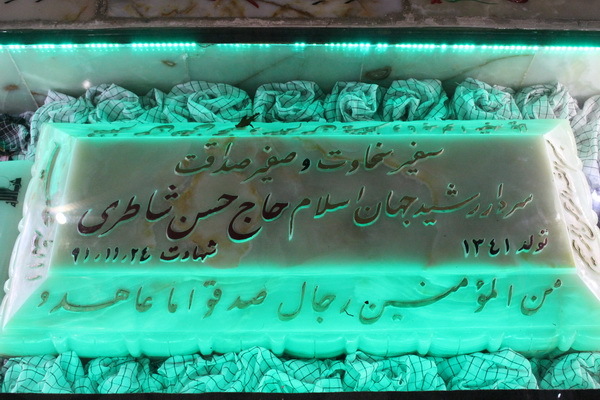 سفیر سخاوت و صفیر صداقت
سردار رشید جهان اسلام حاج حسن شاطری
تولد ۱۳٤۱ شهادت ۹۱,۱۱,۲٤
من المؤمنین رجال صدقوا ما عاهدو